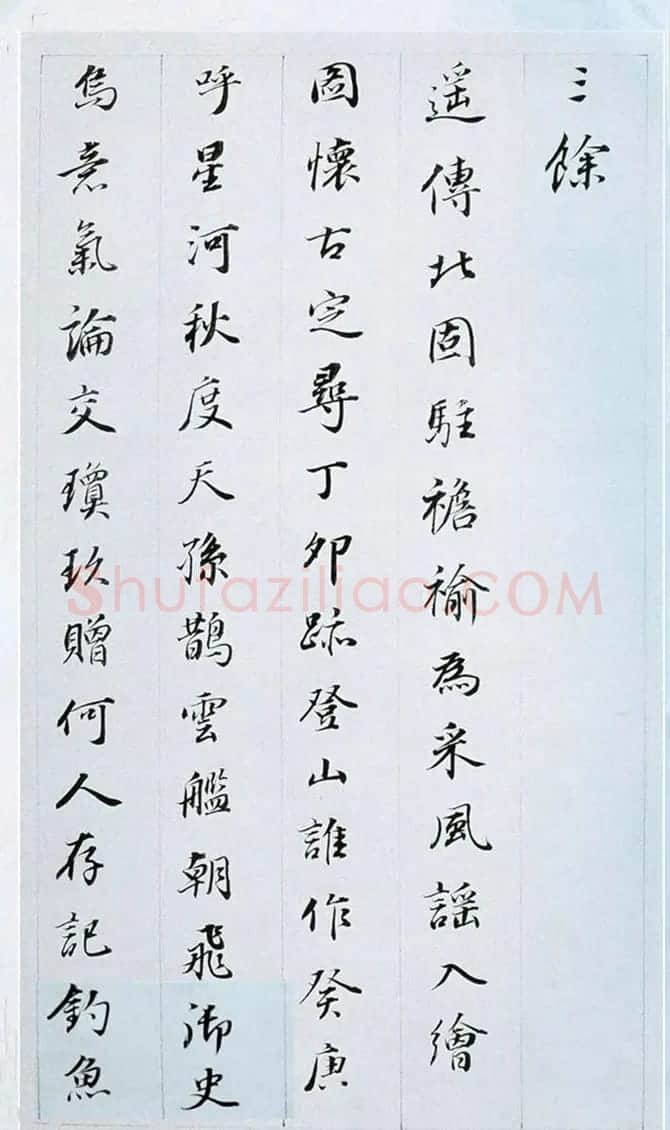 三餘
遥傳北固駐襜褕為采風謡入繪
圖懷古定尋丁卯跡登山誰作癸庚
呼星河秋度天孫鵲雲艦朝飛御史
烏意氣論交瓊玖贈何人存記釣魚
Shufaziliao.COM